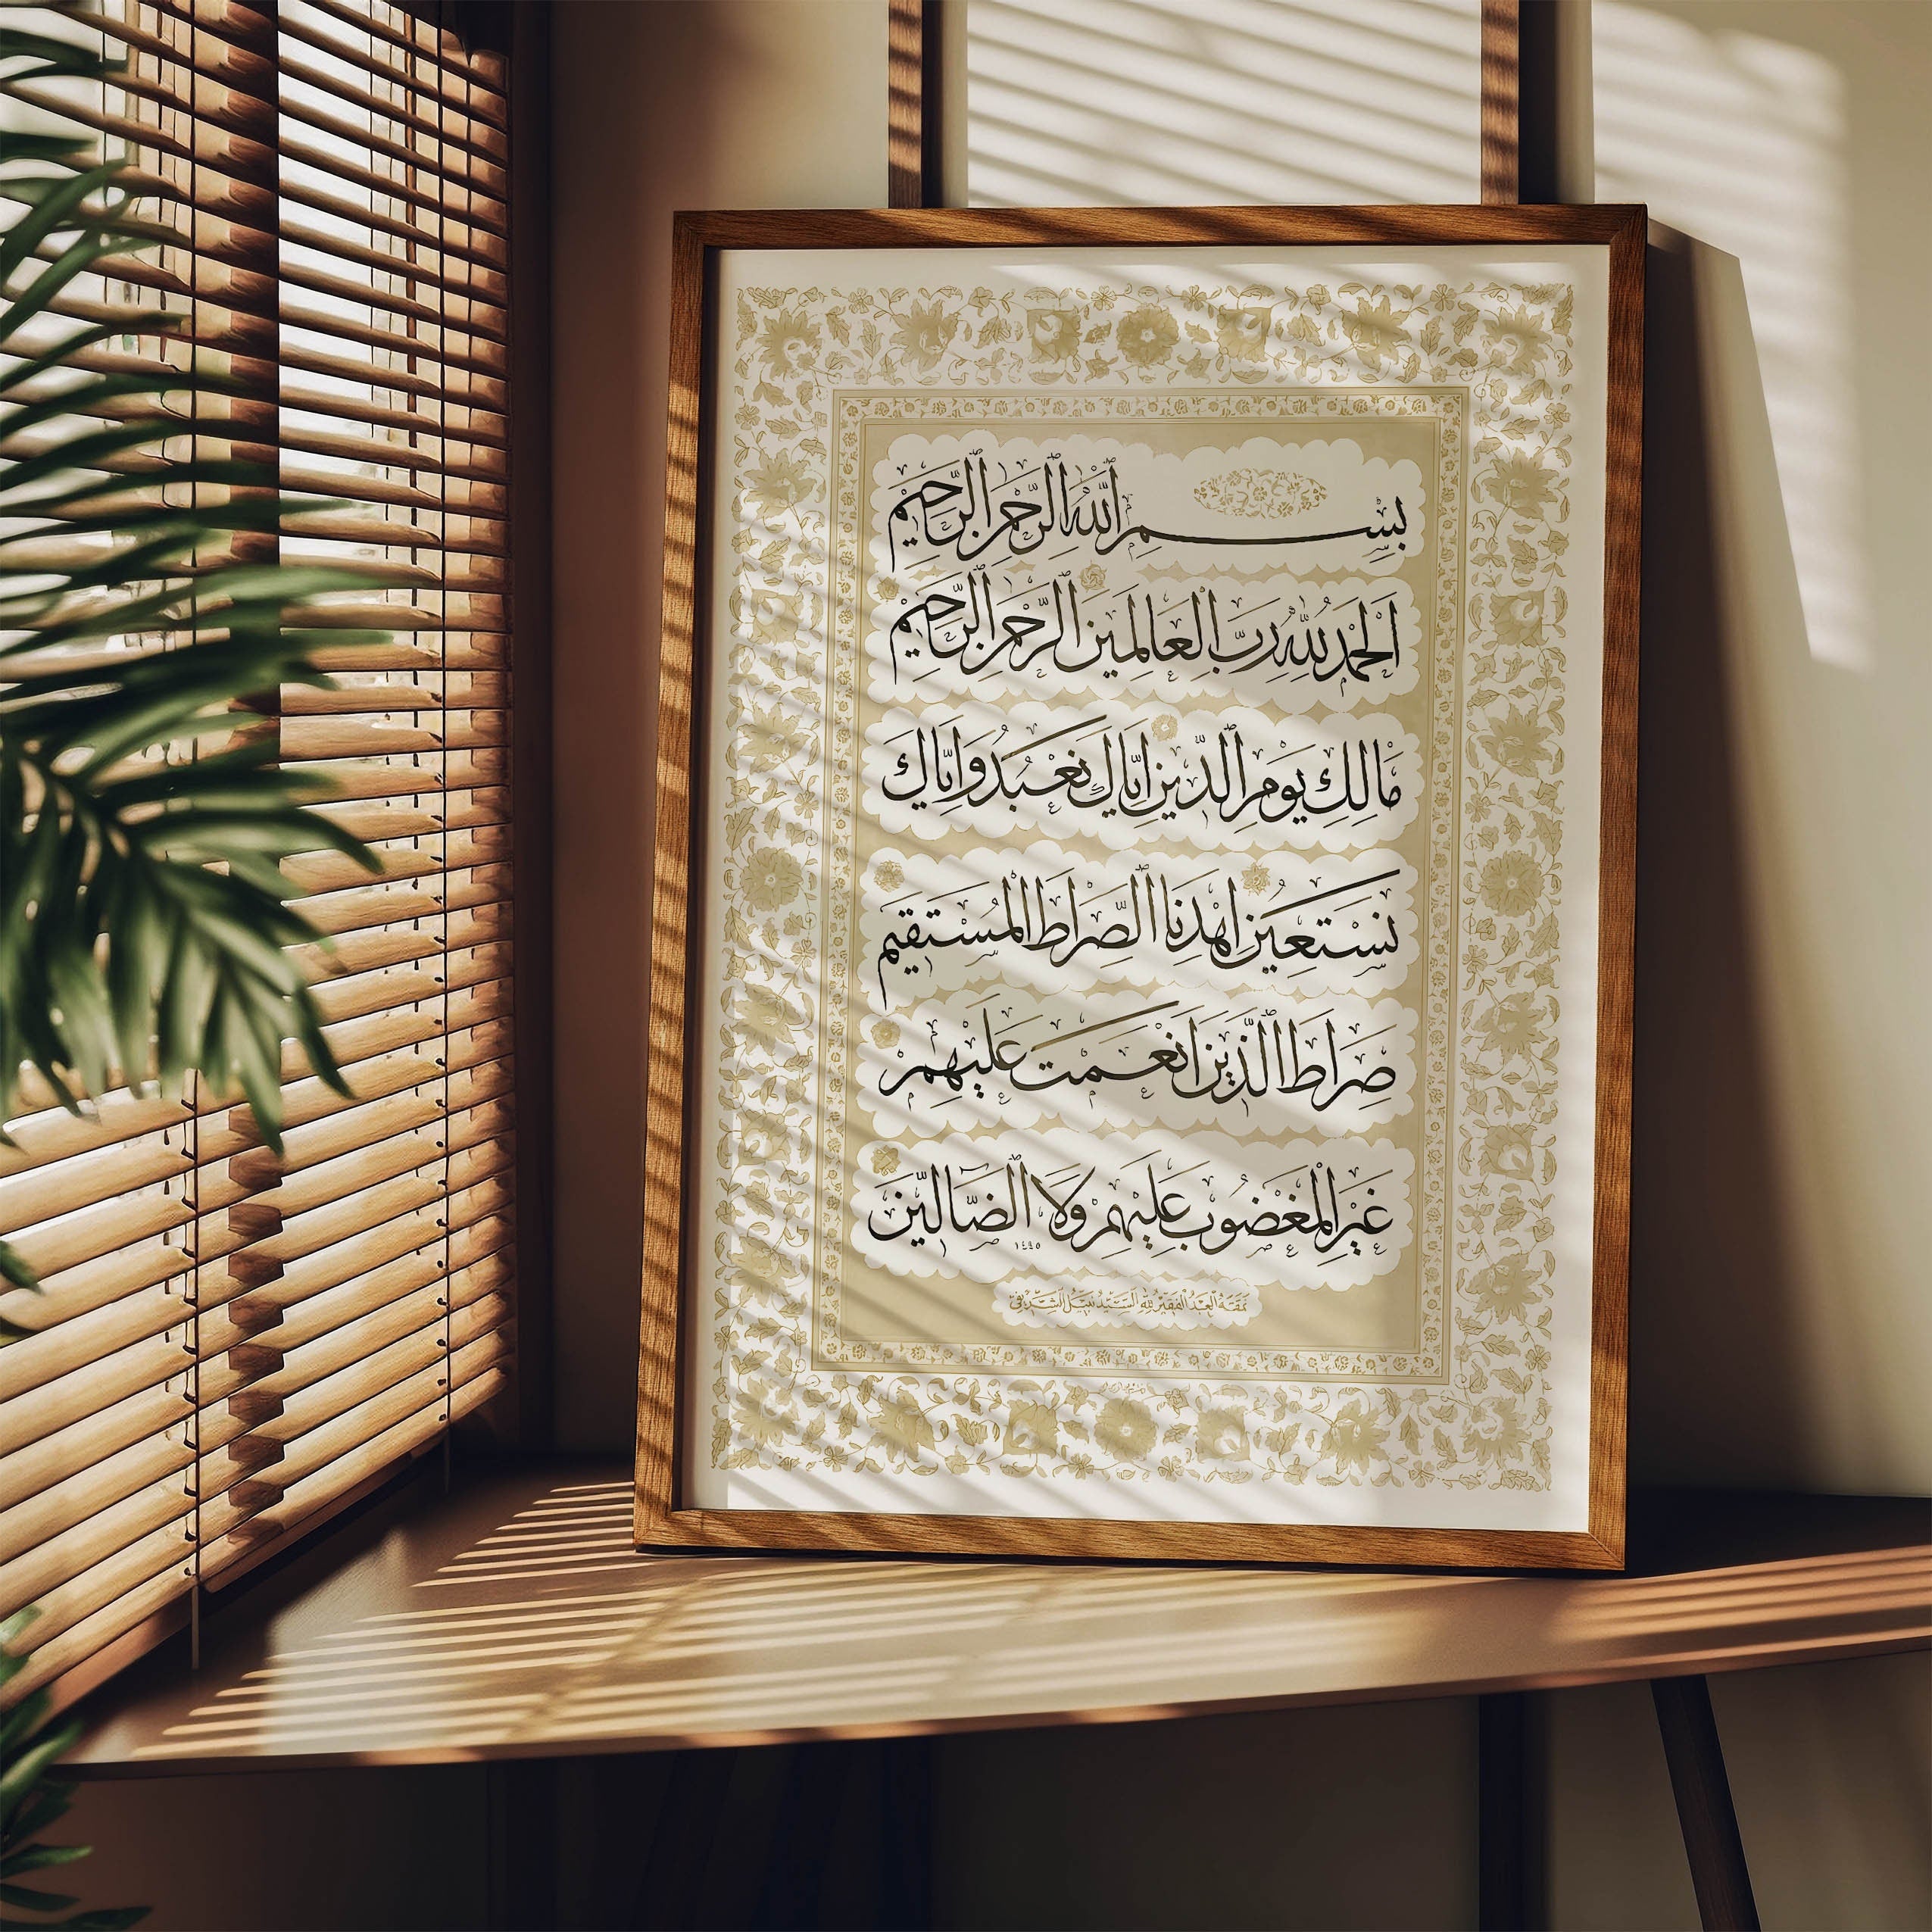 بِسْمِ اللَّهِ الرَّحْمَنِ الرَّحِيمِ
اَلْحَمْدُ لِلَّهِ رَبِّ الْعَالَمِينَ الرَّحْمَنِ الرَّحِيمِ
مَالِكِ يَوْمِ الدِّينِ إِيَّاكَ نَعْبُدُ وَإِيَّاكَ
نَسْتَعِينُ اِهْدِنَا الصِّرَاطَ الْمُسْتَقِيمَ
صِرَاطَ الَّذِينَ أَنْعَمْتَ عَلَيْهِمْ
غَيْرِ الْمَغْضُوبِ عَلَيْهِمْ وَلَا الضَّالِّينَ
١٤٤٥
نَمَّقَهُ الْعَبْدُ الْفَقِيرُ لِلَّهِ السَّيِّدُ نَبِيلُ الشَّرِيفِي